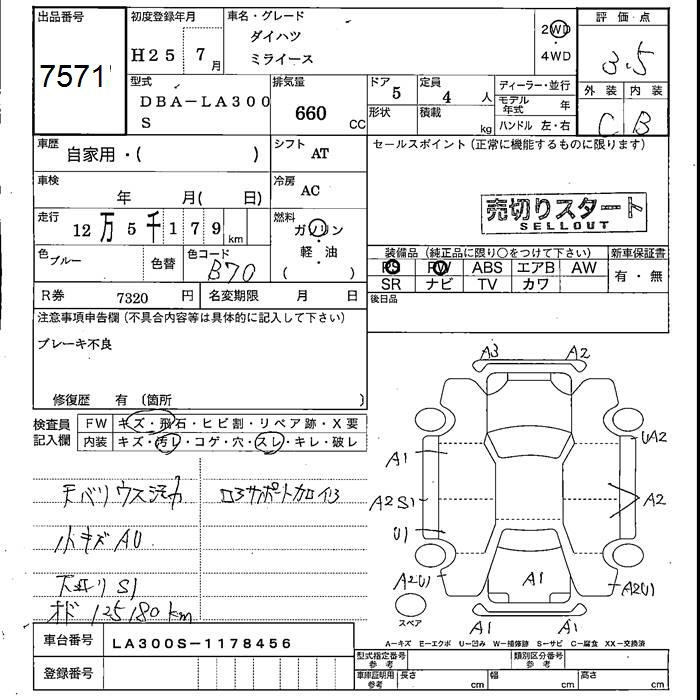 出品番号
7571
初度登録年月
H25 7月
車名・グレード
ダイハツ
ミライース
2WD
・
4WD
評価点
3.5
外装 内装
C B
型式
DBA-LA300
S
排気量
660 CC
ドア
5
定員
4 人
形状
積載
kg
ディーラー・並行
モデル年式 年
ハンドル 左・右
車歴
自家用・( )
シフト
AT
セールスポイント (正常に機能するものに限ります)
車検
年 月( 日)
冷房
AC
売切りスタート
SELLOUT
走行
12万5千179km
燃料
ガソリン
軽・油
( )
色
ブルー
色替
色コード
B70
装備品 (純正品に限り○をつけて下さい)
PS PW ABS エアB AW
SR ナビ TV カワ
新車保証書
有・無
R券 7320 円
名変期限 月 日
後日品
注意事項申告欄 (不具合内容等は具体的に記入して下さい)
ブレーキ不良
修復歴 有 (箇所 )
検査員
記入欄
FW キズ・飛石・ヒビ割・リペア跡・X要
内装 キズ・汚レ・コゲ・穴・スレ・キレ・破レ
小キズ AU
S1
オド 125180km
A3 A2
UA2
A1
A2S1
A2
U1
A2U1
A1
A2U1
スペア
A1 A1
A-キズ E-エクボ U-凹み W-補修跡 S-サビ C-腐食 XX-交換済
車台番号 LA300S-1178456
登録番号
型式指定番号
参考
類別区分番号
参考
車庫証明用
参考
長さ cm
幅 cm
高さ cm